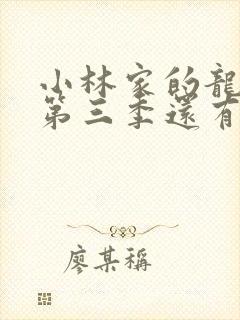 小林家的龍
第三季還有
廖某稱